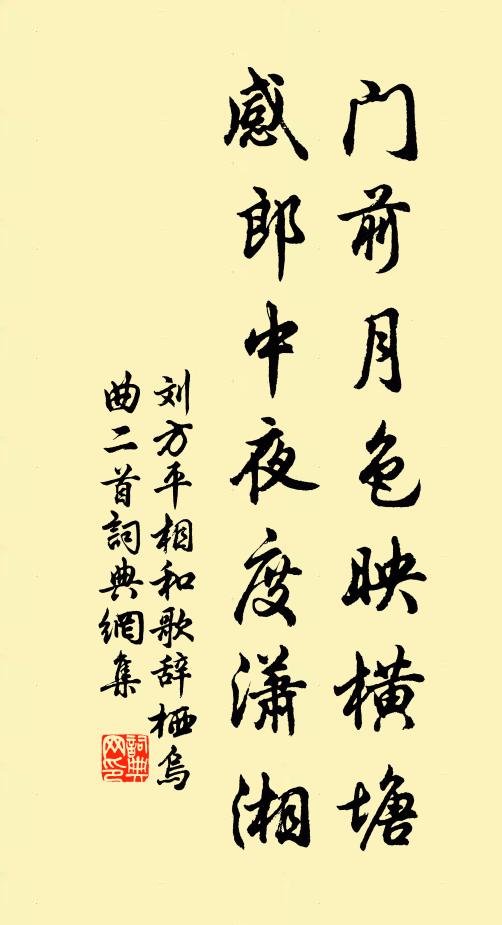 门前月色映横塘
感郎中夜度潇湘
刘方平相和歌辞栖乌
曲二首詞典網集
詞典网印